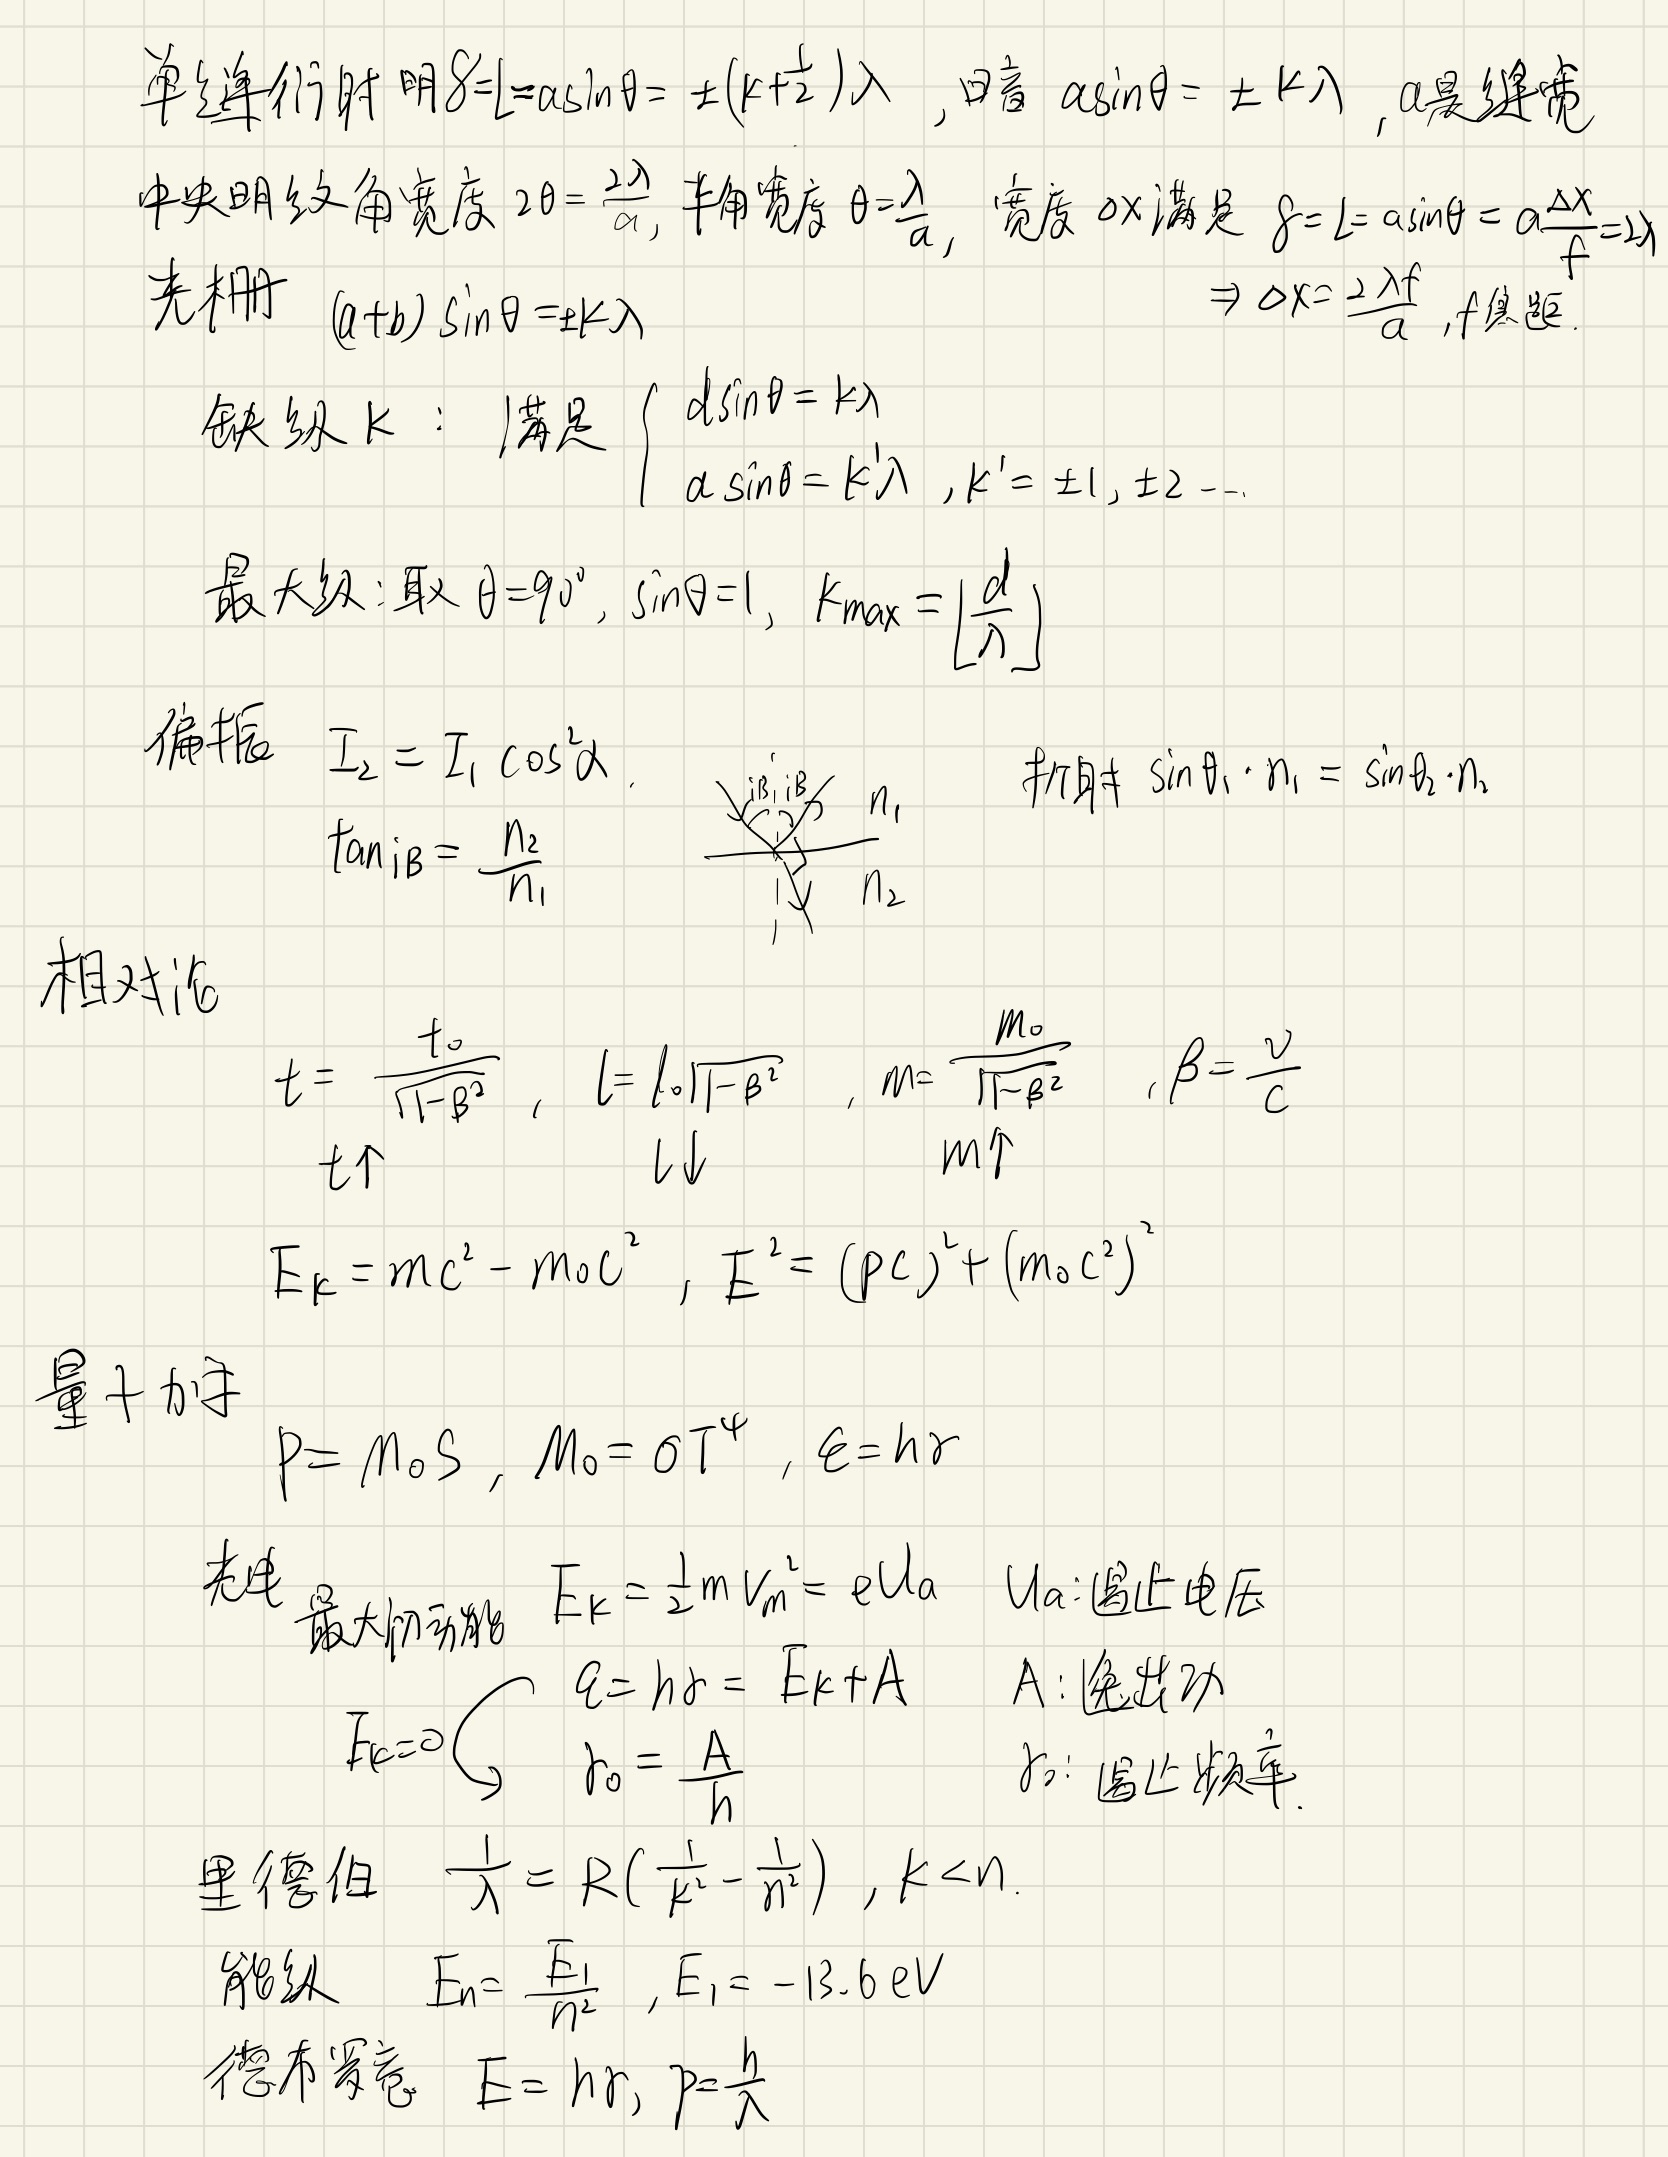 单缝衍射 明δ=L=asinθ= ±(k+1/2)λ , 暗 asinθ= ± kλ , a是缝宽
中央明纹角宽度 2θ=2λ/a, 半角宽度 θ=λ/a, 宽度 Δx满足 δ=L=asinθ=aΔx/f=2λ
⇒ Δx=2λf/a , f焦距.
光栅 (a+b) sinθ=±kλ
缺级 k : 满足 { dsinθ= kλ
a sinθ= k'λ , k'= ±1, ±2 ---
最大级:取 θ=90°, sinθ=1, kmax=⌊d/λ⌋
偏振 I₂ = I₁ cos²α.
折射 sinθ₁·n₁ = sinθ₂·n₂
iB iB n₁
tan iB = n₂/n₁
n₂
相对论
t= t₀/√(1-β²) , l= l₀√(1-β²) , m= m₀/√(1-β²) , β= v/c
t↑ l↓ m↑
Ek = mc² - m₀c² , E² = (pc)² + (m₀c²)²
量子力学
P= M₀S , M₀= σT⁴ , ε=hγ
光电 最大初动能 Ek = 1/2 m Vm² = eUa Ua:遏止电压
ε= hγ = Ek+A A:逸出功
Ek=0 γ₀ = A/h γ₀: 遏止频率.
里德伯 1/λ = R(1/k² - 1/n²) , k<n.
能级 En= E₁/n² , E₁= -13.6 eV
德布罗意 E= hγ, p=h/λ